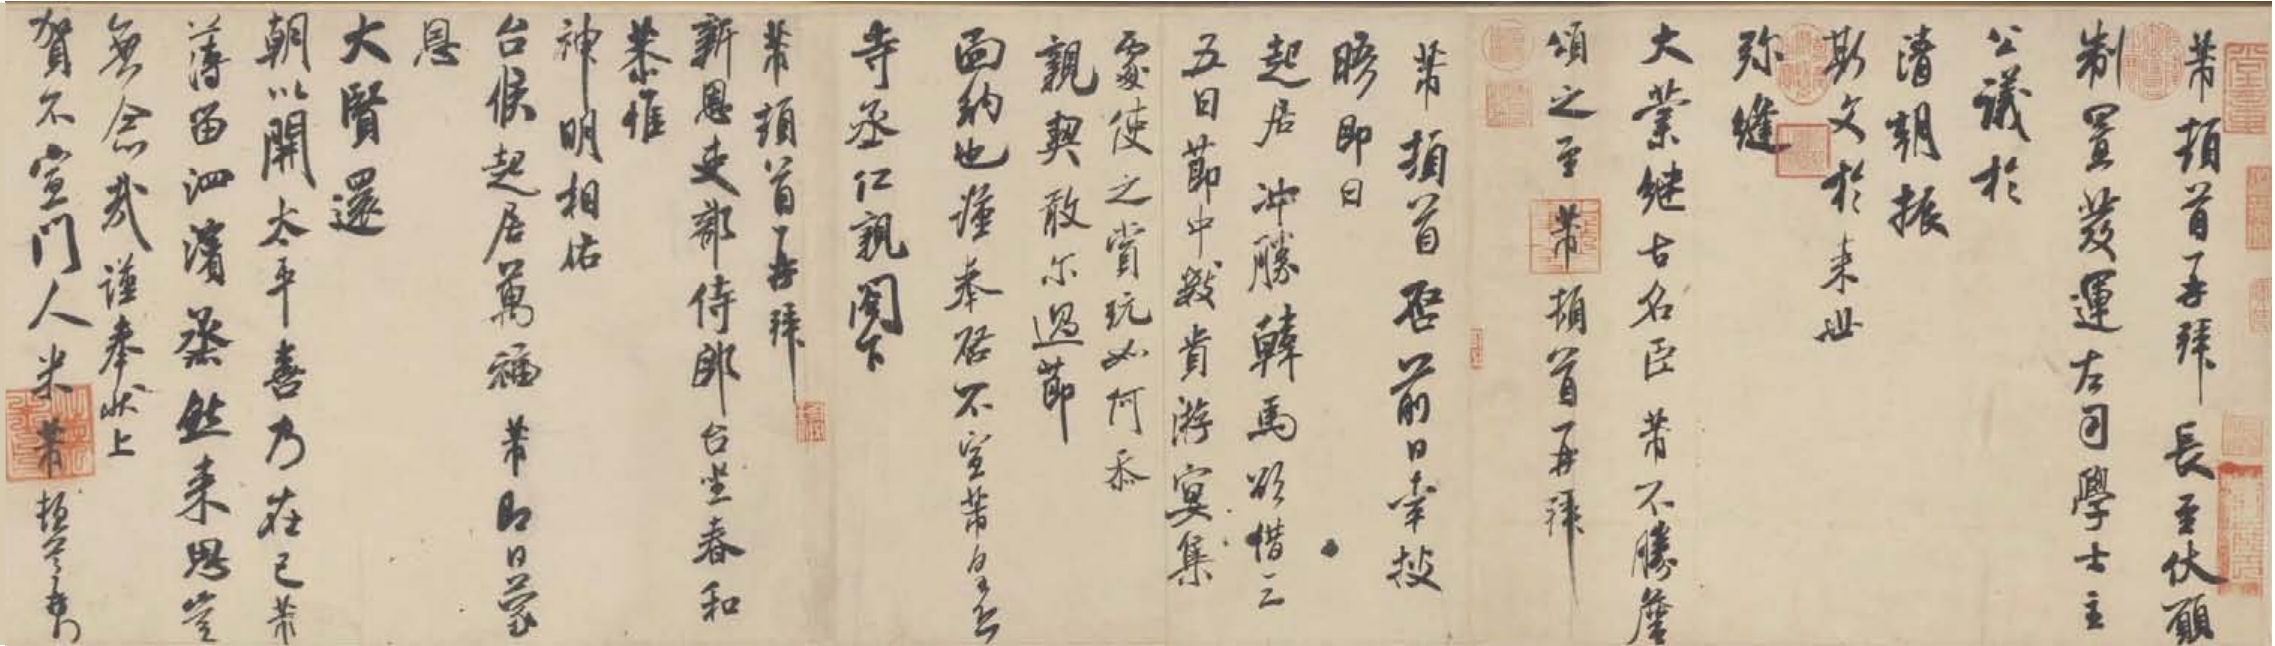 芾頓首再拜長至伏願
制置發運左司學士主
公議於
清朝振
斯文於來世
弥縫
大業繼古名臣芾不勝詹
頌之至芾頓首再拜
芾頓首啓前日幸披
晤即日
起居冲勝韓馬欲借三
五日節中數貴游宴集
處使之賞玩如何忝
親契敢尔過節
面納也謹奉啓不宣芾
寺丞仁親閣下
芾頓首再拜
新恩吏部侍郎台坐春和
恭惟
神明相佑
台候起居萬福芾即日蒙
恩
大賢還
朝以開太平喜乃在己芾
薄留泗濱蒸然來思豈
無念哉謹奉狀上
賀不宣門人米芾頓首再拜